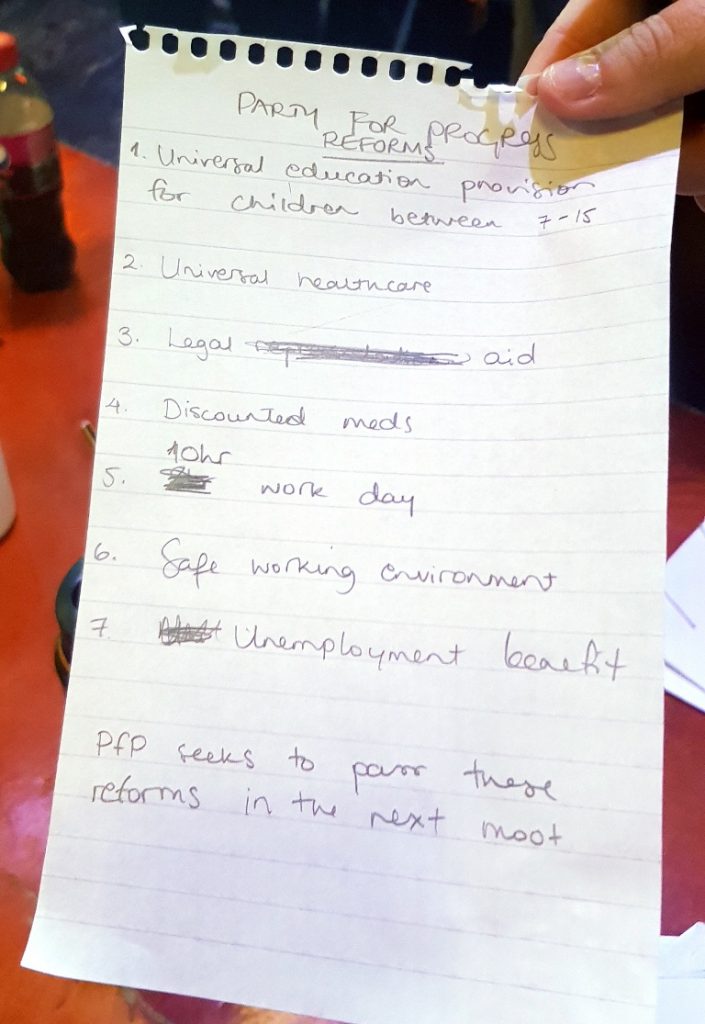 PARTY FOR PROGRESS
REFORMS
1. Universal education provision
for children between 7-15
2. Universal healthcare
3. Legal aid
4. Discounted meds
10hr
5. work day
6. Safe working environment
7 Unemployment benefit
PfP seeks to pass these
reforms in the next moot